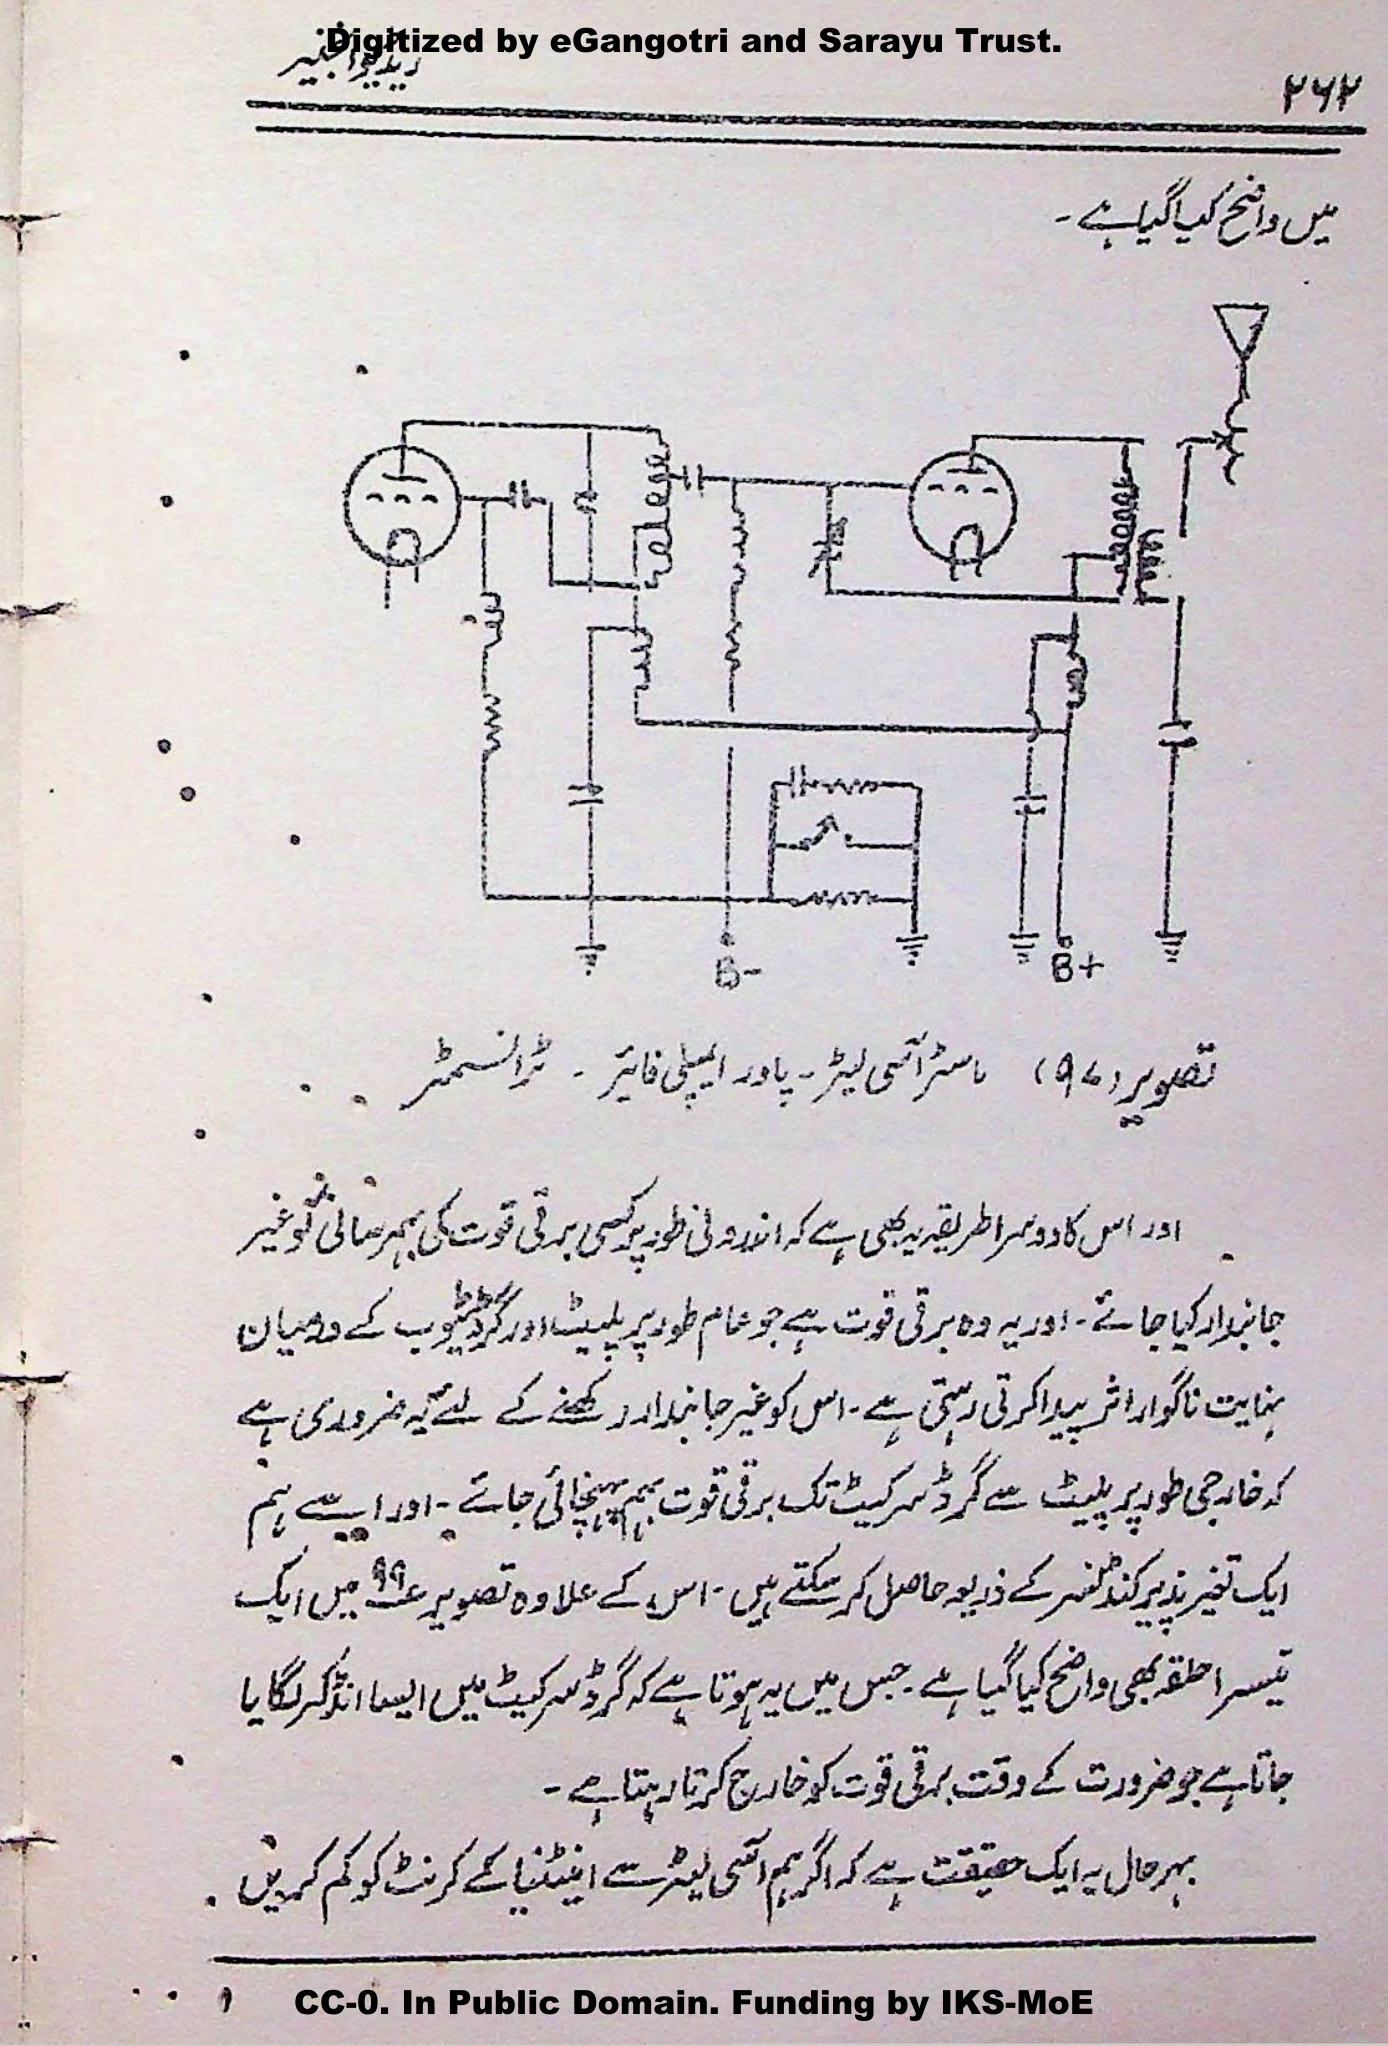 Digitized by eGangotri and Sarayu Trust.
ریڈیو انجنیر
۲۶۲
میں واضح کیا گیا ہے ۔
B-
B+
تصویر (۹۷) ماسٹر آسی لیٹر ۔ پاور ایمپلی فائیر ۔ ٹرانسمٹر
اور اس کا دوسرا طریقہ یہ بھی ہے کہ اندرونی طور پر کسی برقی قوت کی بہم رسانی کو غیر
جانبدار کیا جائے ۔ اور یہ وہ برقی قوت ہے جو عام طور پر پلیٹ اور گرڈ ٹیوب کے درمیان
نہایت ناگوار اثر پیدا کرتی رہتی ہے ۔ اس کو غیر جانبدار رکھنے کے لئے یہ ضروری ہے
کہ خارجی طور پر پلیٹ سے گرڈ سرکیٹ تک برقی قوت بہم پہنچائی جائے ۔ اور اسے ہم
ایک تغیر پذیر کنڈنسر کے ذریعہ حاصل کر سکتے ہیں ۔ اس کے علاوہ تصویر ع۹۹ میں ایک
تیسرا حلقہ بھی واضح کیا گیا ہے ۔ جس میں یہ ہوتا ہے کہ گرڈ سرکیٹ میں ایسا انڈکٹر لگایا
جاتا ہے جو ضرورت کے وقت برقی قوت کو خارج کرتا رہتا ہے ۔
بہر حال یہ ایک حقیقت ہے کہ اگر ہم آسی لیٹر سے اینٹنیا کے کرنٹ کو کم کریں
CC-0. In Public Domain. Funding by IKS-MoE